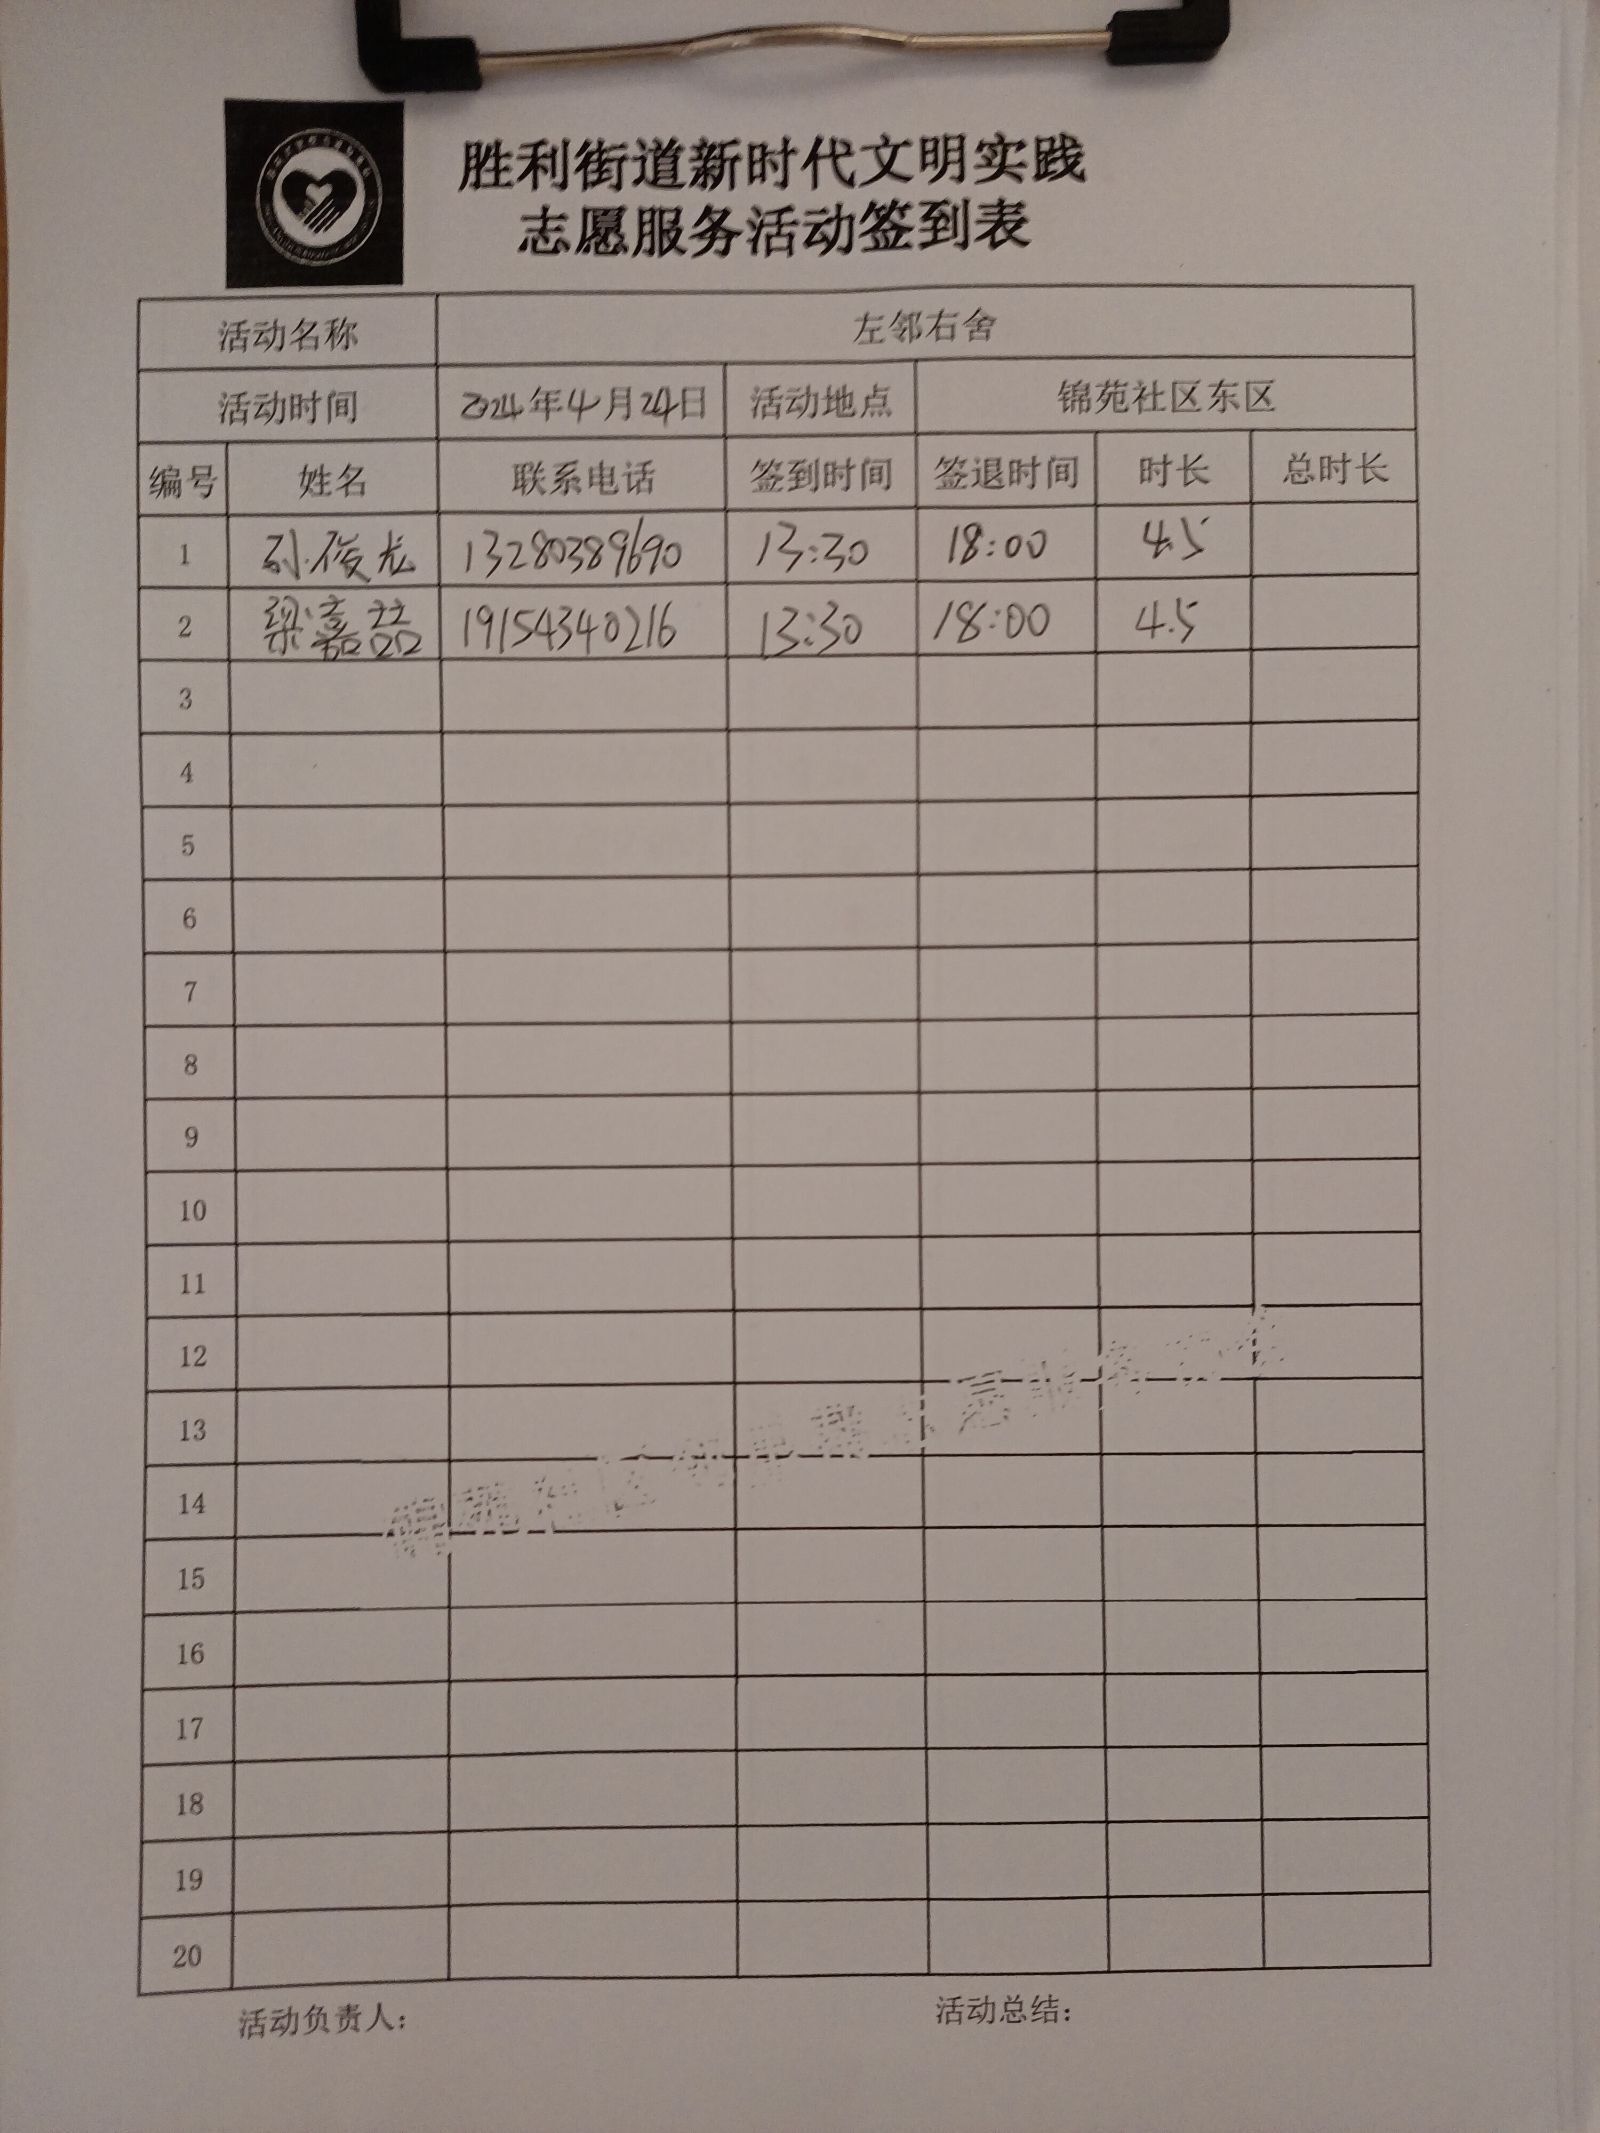 胜利街道新时代文明实践
志愿服务活动签到表
活动名称 左邻右舍
活动时间 2024年4月24日 活动地点 锦苑社区东区
编号 姓名 联系电话 签到时间 签退时间 时长 总时长
1 孙俊龙 13280389690 13:30 18:00 4.5
2 梁嘉喆 19154340216 13:30 18:00 4.5
3
4
5
6
7
8
9
10
11
12
13
14
15
16
17
18
19
20
活动负责人: 活动总结: